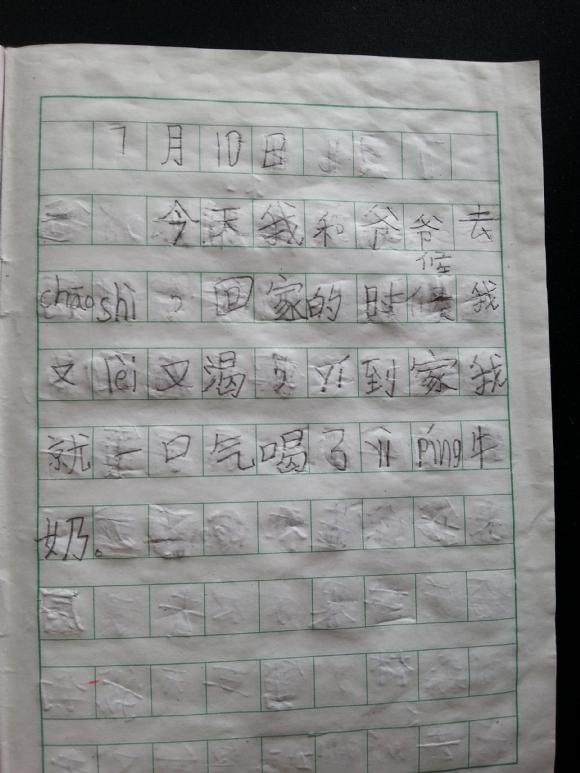 7月10日
今天我和爷爷去
候
chāoshì。回家的时候我
又lèi又渴，yí到家我
就一口气喝了yìpíng牛
奶。